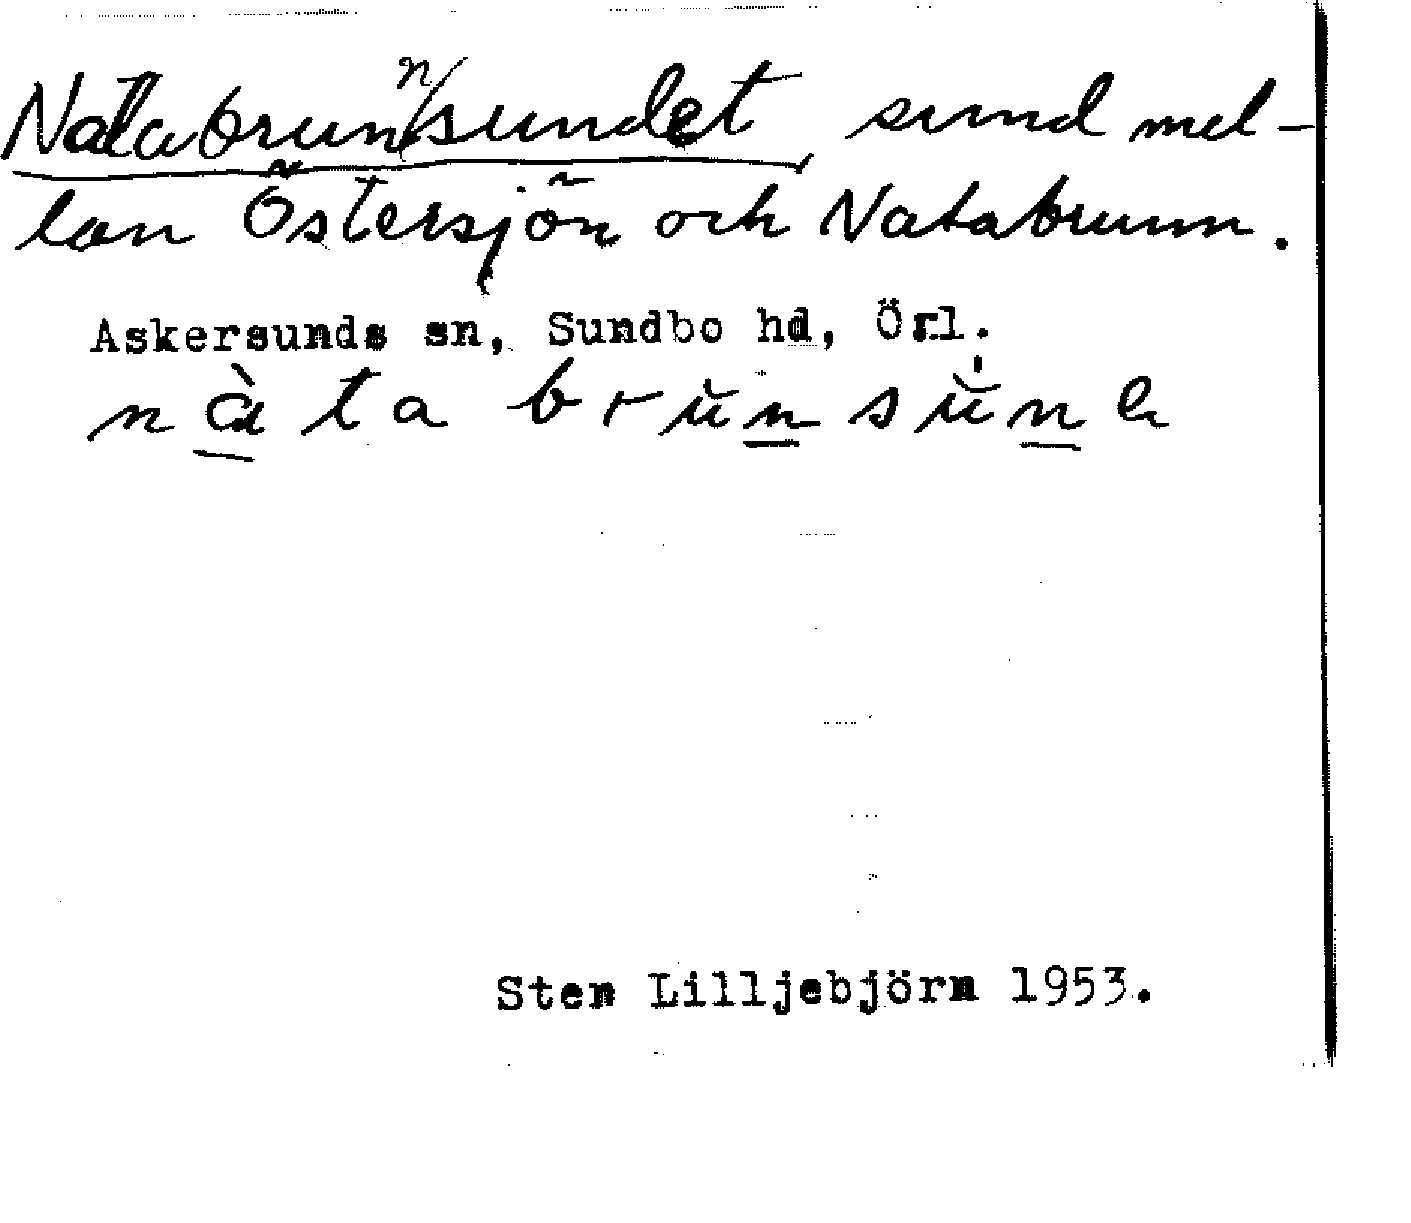 Natabrunnsundet, sund mel-
lan Östersjön och Natabrunn.
Askersunds sn, Sundbo hd, Örl.
nàta brŭnsŭ́ne
Sten Lilljebjörn 1953.